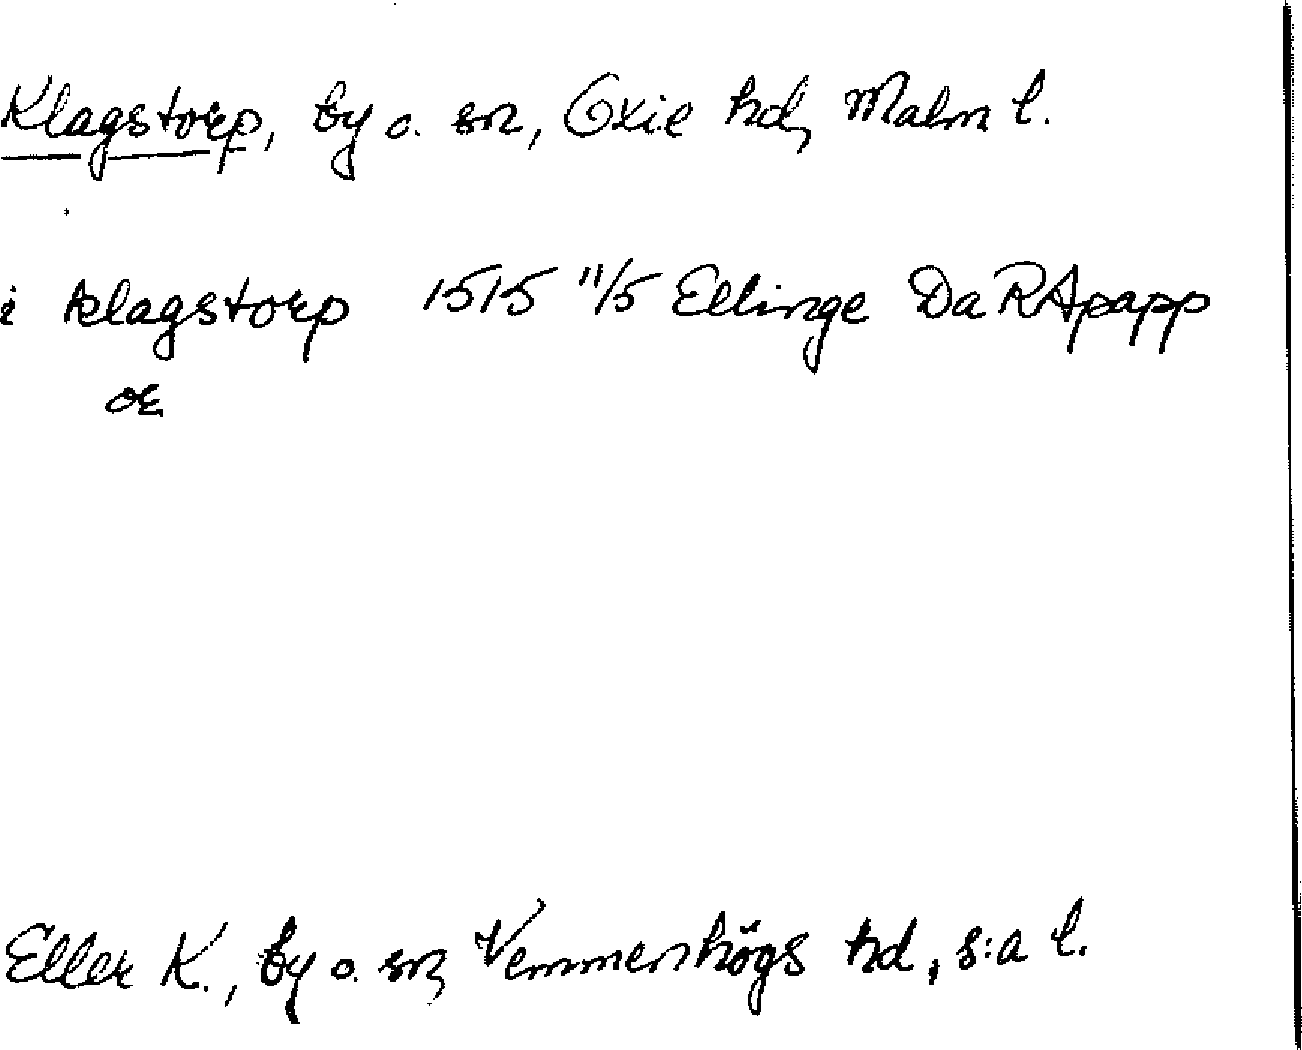 Klagstorp, by o. sn, Oxie hd, Malm l.
i klagstorp 1515 11/5 Ellinge Da RApapp
or
Eller K., by o. sn, Vemmenhögs hd, s:a l.